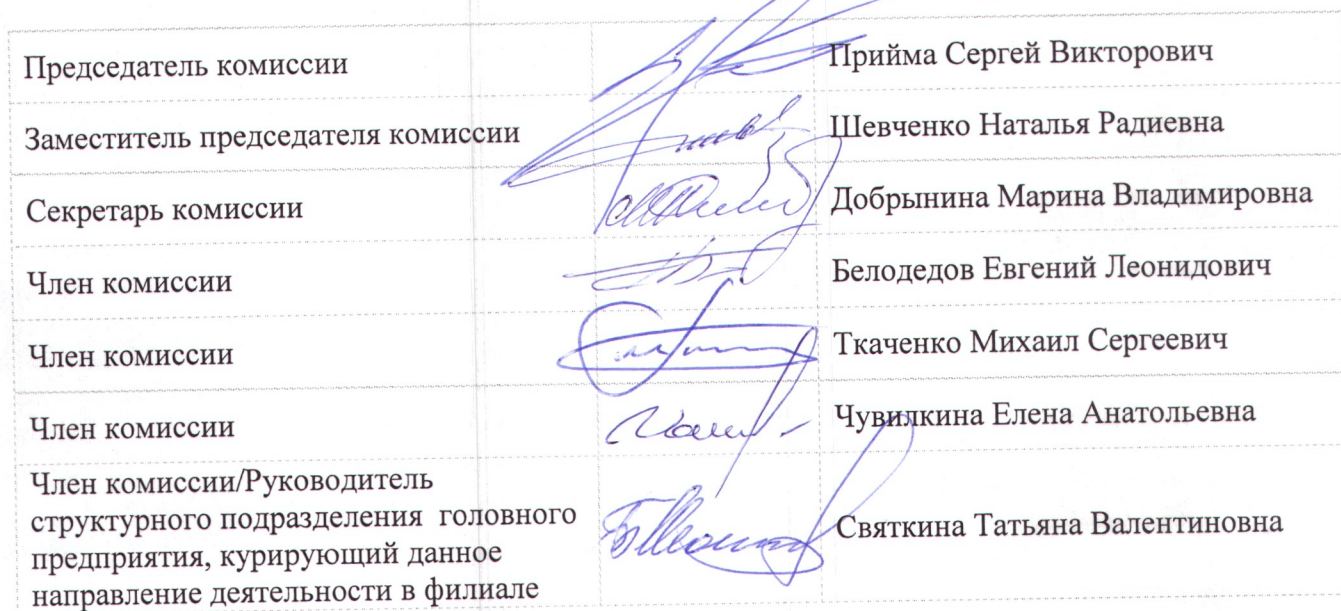 Председатель комиссии Прийма Сергей Викторович
Заместитель председателя комиссии Шевченко Наталья Радиевна
Секретарь комиссии Добрынина Марина Владимировна
Член комиссии Белодедов Евгений Леонидович
Член комиссии Ткаченко Михаил Сергеевич
Член комиссии Чувилкина Елена Анатольевна
Член комиссии/Руководитель
структурного подразделения головного
предприятия, курирующий данное
направление деятельности в филиале
Святкина Татьяна Валентиновна